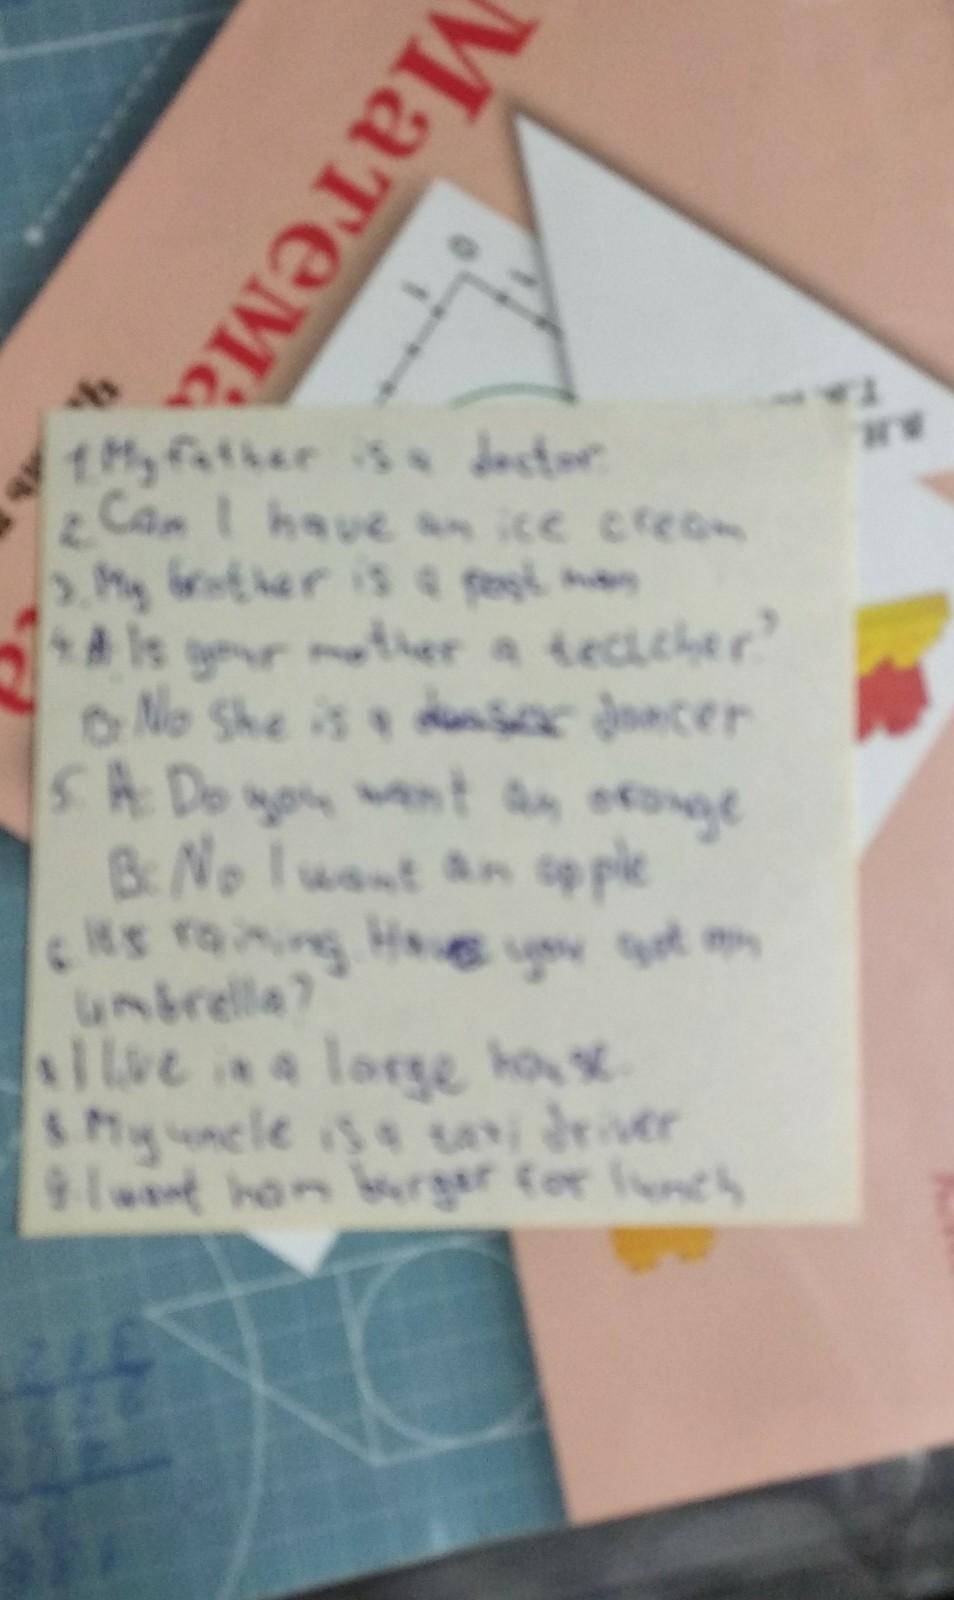 Матема
0
1
1
1. My father is a doctor.
2. Can I have an ice cream
3. My brother is a post man
4. A Is your mother a teacher?
B: No She is a dancer
5. A: Do you want an orange
B: No I want an apple
6. It's raining. Have you got an
umbrella?
I live in a large house.
8. My uncle is a taxi driver
9. I want ham burger for lunch